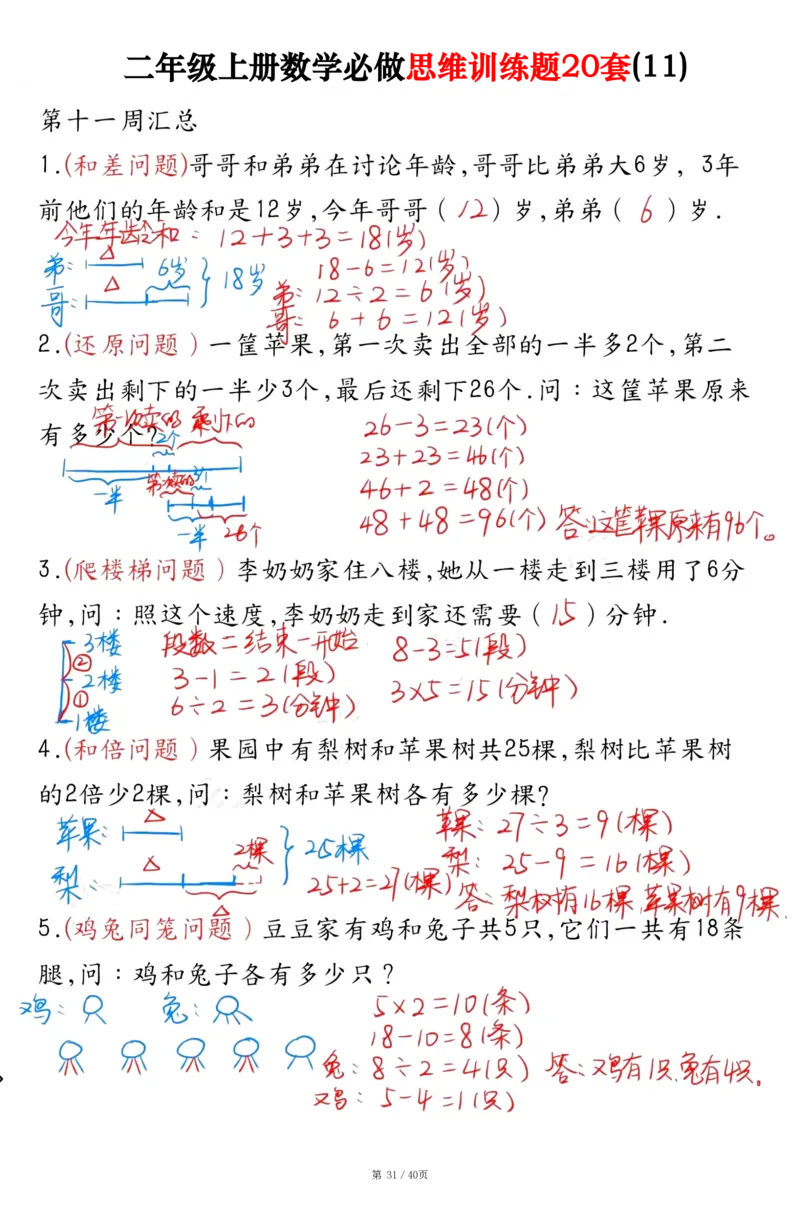 二年级上册数学必做思维训练题20套(11)
第十一周汇总
1.(和差问题)哥哥和弟弟在讨论年龄,哥哥比弟弟大6岁, 3年
前他们的年龄和是12岁,今年哥哥（12）岁,弟弟（6）岁.
今年年龄和：12+3+3=18(岁)
弟: △ 6岁 18岁 18-6=12(岁)
哥: △ 弟: 12÷2=6(岁)
哥: 6+6=12(岁)
2.(还原问题）一筐苹果,第一次卖出全部的一半多2个,第二
次卖出剩下的一半少3个,最后还剩下26个.问：这筐苹果原来
有多少个?
第一次卖的 剩下的 26-3=23(个)
2个 23+23=46(个)
一半 46+2=48(个)
一半 26个 48+48=96(个) 答:这筐苹果原来有96个。
3.(爬楼梯问题）李奶奶家住八楼,她从一楼走到三楼用了6分
钟,问：照这个速度,李奶奶走到家还需要（15）分钟.
3楼 段数=结束-开始 8-3=5(段)
②
2楼 3-1=2(段) 3×5=15(分钟)
① 6÷2=3(分钟)
1楼
4.(和倍问题）果园中有梨树和苹果树共25棵,梨树比苹果树
的2倍少2棵,问：梨树和苹果树各有多少棵?
苹果: △ 苹果: 27÷3=9(棵)
2棵 25棵 梨: 25-9=16(棵)
梨: △ △ 25+2=27(棵) 答:梨树有16棵,苹果树有9棵.
5.(鸡兔同笼问题）豆豆家有鸡和兔子共5只,它们一共有18条
腿,问：鸡和兔子各有多少只？
鸡: 兔: 5×2=10(条)
18-10=8(条)
兔: 8÷2=4(只) 答:鸡有1只,兔有4只。
鸡: 5-4=1(只)
第 31 / 40页